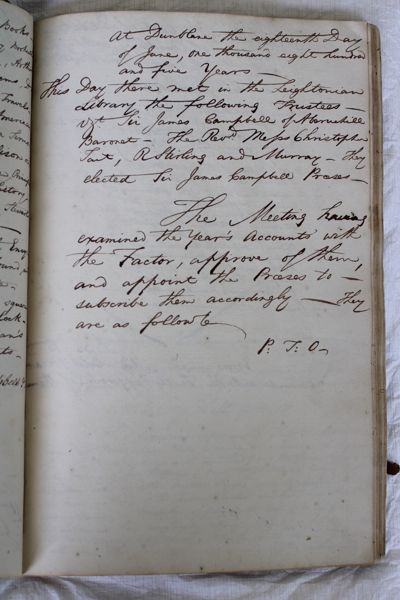 At Dunblane the eighteenth Day
of June, one thousand eight hundred
and five Years —
This Day there met in the Leightonian
Library the following Trustees —
vizt Sir James Campbell of Aberuchill
Baronet — The Revd Messrs Christopher
Tait, R. Stirling and Murray — They
elected Sir James Campbell Preses —
The Meeting having
examined the Year's Accounts with
the Factor, approve of them,
and appoint the Preses to —
subscribe them accordingly — They
are as follows
P. T. O —